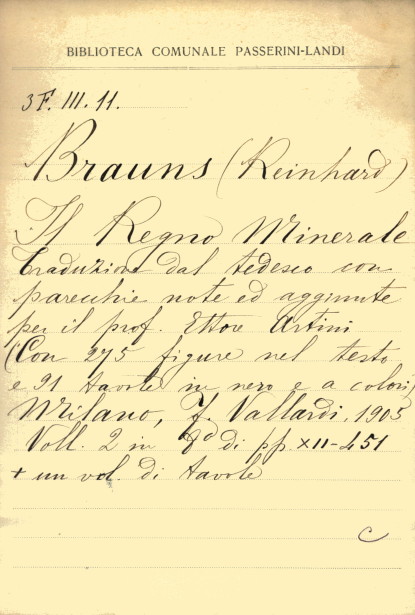 BIBLIOTECA COMUNALE PASSERINI-LANDI
3F. III. 11.
Brauns (Reinhard)
Il Regno Minerale
Traduzione dal tedesco con
parecchie note ed aggiunte
per il prof. Ettore Artini
(Con 275 figure nel testo
e 91 tavole in nero e a colori)
Milano, F. Vallardi, 1905
Voll. 2 in 8° di pp. XII-451
+ un vol. di tavole
C